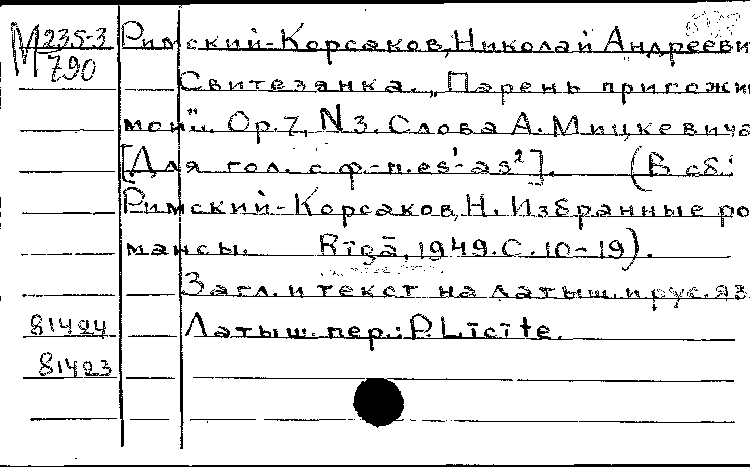 М 235-3
790
Римский-Корсаков, Николай Андрееви
Свитезянка. „Парень пригожи
мой"... Op. 7, N 3. Слова А. Мицкевича
[Для гол. с ф.-п. es¹-as²]. (В сб.:
Римский-Корсаков, Н. Избранные ро
мансы. Rīgā, 1949. С. 10-19).
Загл. и текст на латыш. и рус. яз
81424 Латыш. пер.: P. Līcīte.
81423